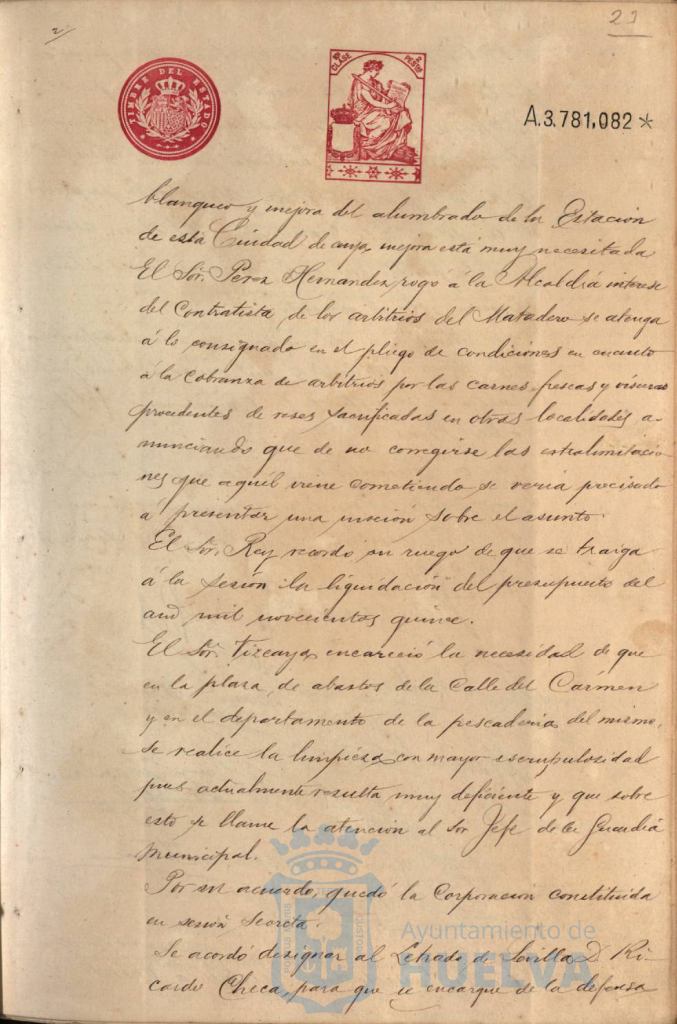 2/
23
TIMBRE DEL ESTADO
CLASE
PESETAS
A.3.781,082*
blanqueo y mejora del alumbrado de la Estación
de esta Ciudad de cuya mejora está muy necesitada
El Sor. Perez Hernandez rogó á la Alcaldiá interese
del Contratista de los arbitrios del Matadero se atenga
á lo consignado en el pliego de condiciones en cuanto
á la cobranza de arbitrios por las carnes frescas y visceras
procedentes de reses sacrificadas en otras localidades a-
nunciando que de no corregirse las extralimitacio-
nes que aquél viene cometiendo se veria precisado
á presentar una moción sobre el asunto.
El Sor. Rey recordó su ruego de que se traiga
á la sesión la liquidación del presupuesto del
año mil novecientos quince.
El Sor. Vizcaya encareció la necesidad de que
en la plaza de abastos de la Calle del Cármen
y en el departamento de la pescaderia del mismo,
se realice la limpieza con mayor escrupulosidad
pues actualmente resulta muy deficiente y que sobre
esto se llame la atención al Sor Jefe de la Guardiá
Municipal.
Por un acuerdo, quedó la Corporación constituida
en sesión secreta.
Se acordó designar al Letrado de Sevilla D. Ri-
cardo Checa, para que se encargue de la defensa
Ayuntamiento de
HUELVA